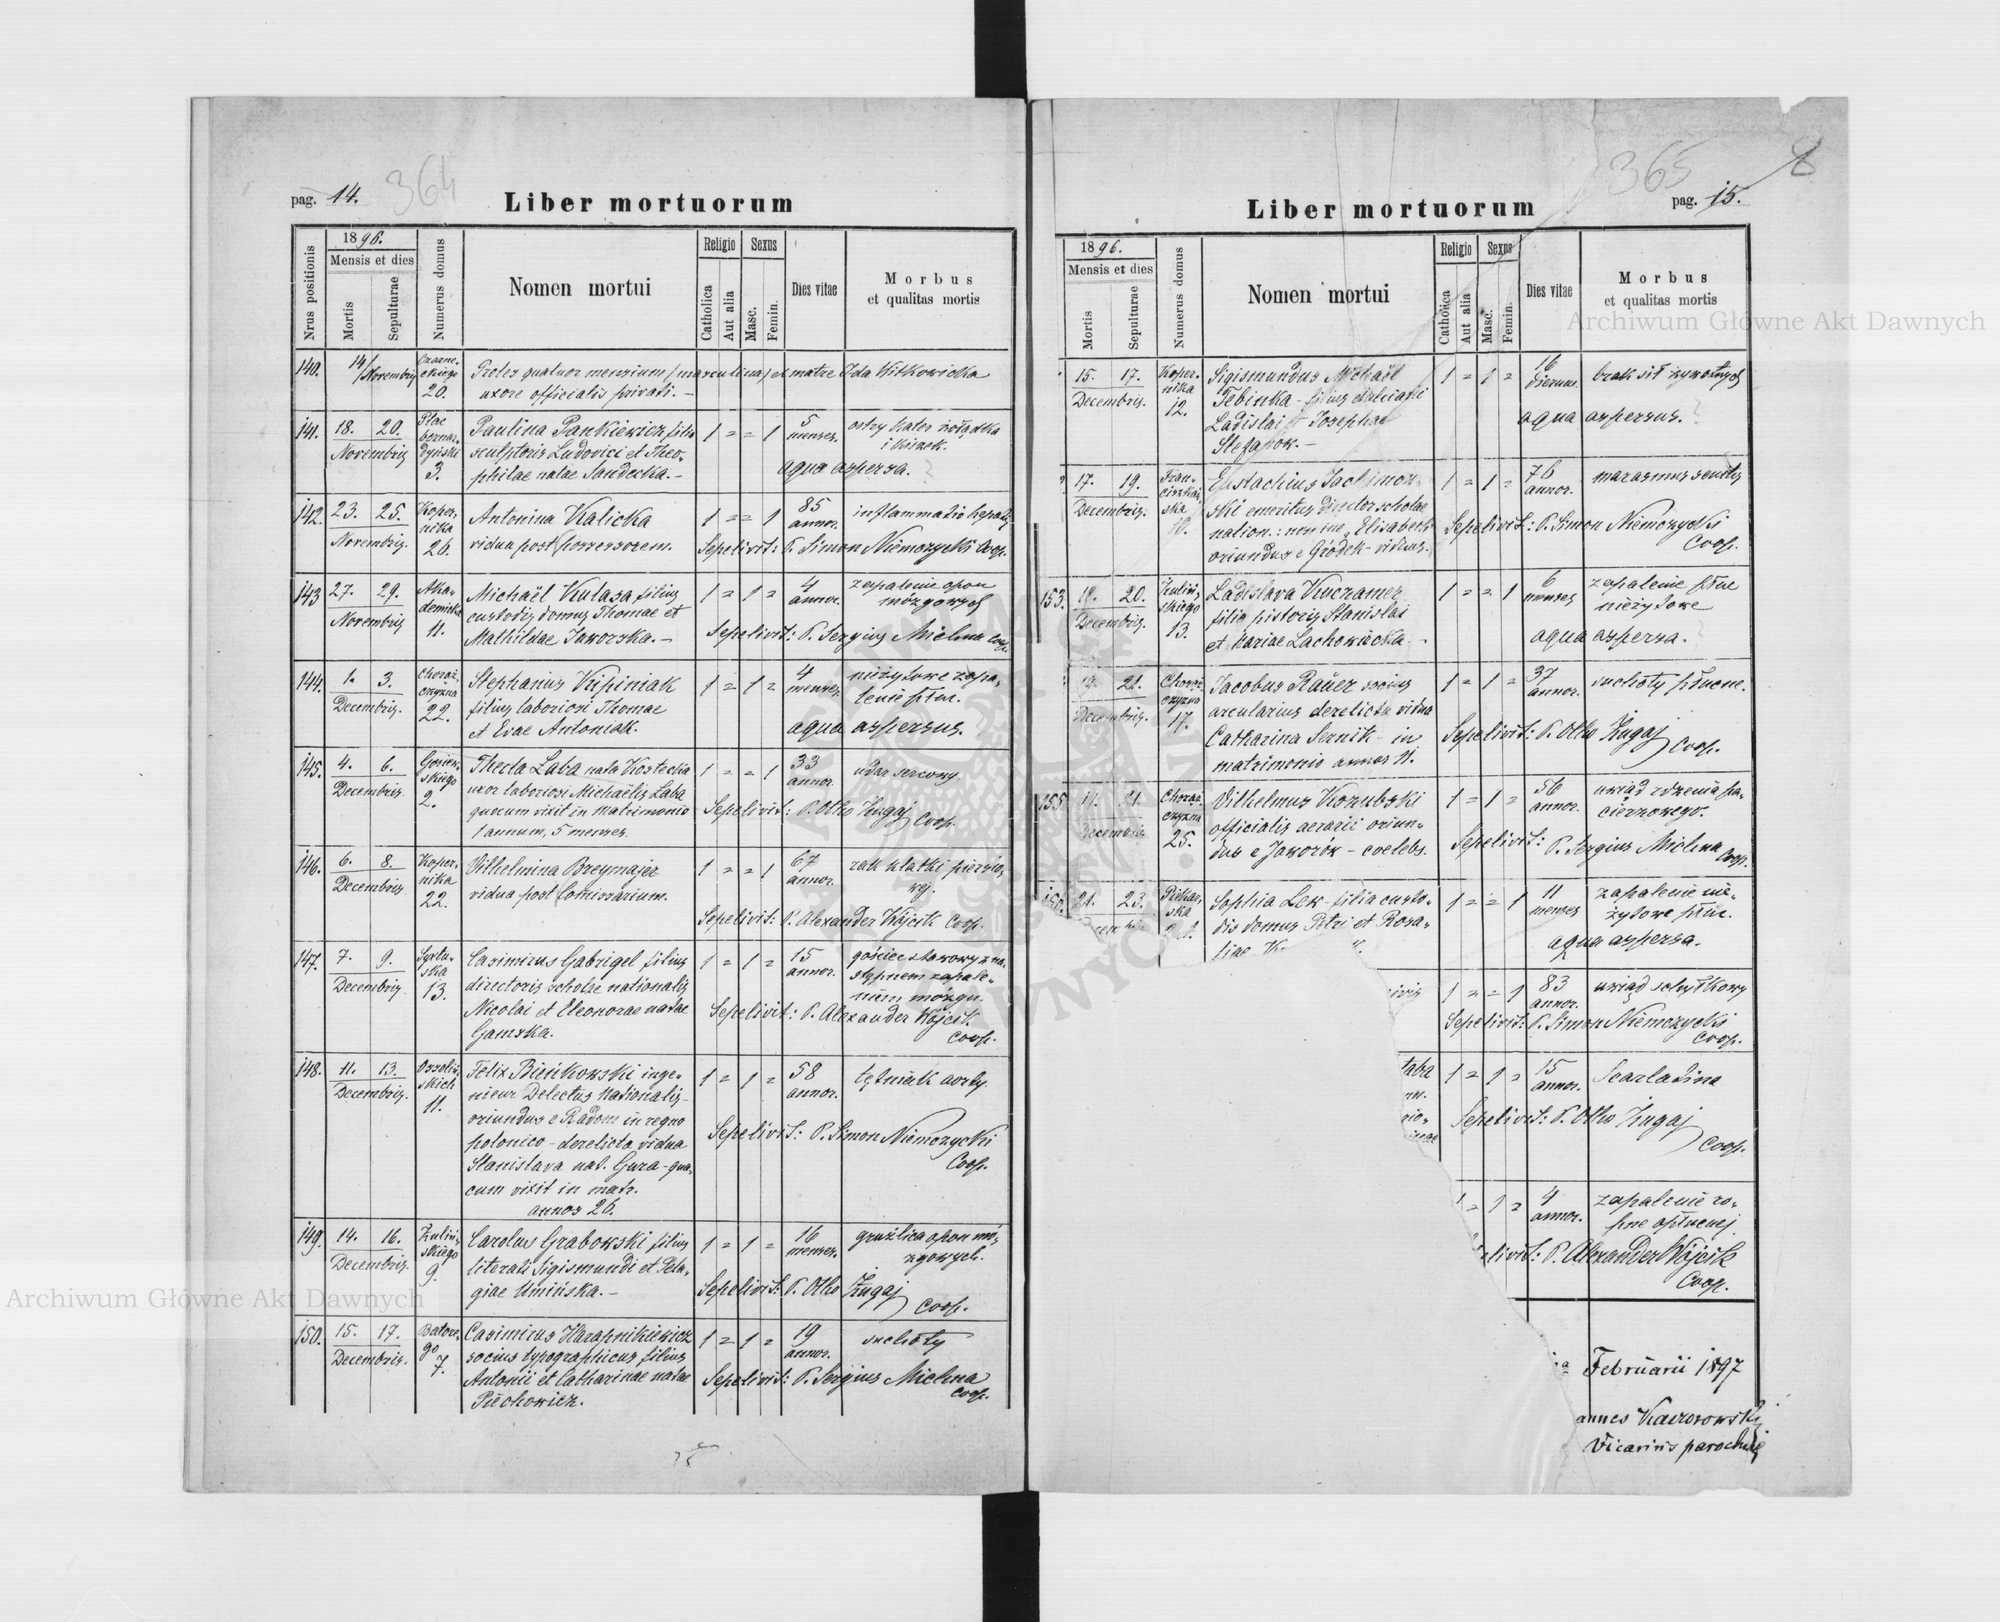 pag. 14.
364
Liber mortuorum
Nrus positionis
1896.
Mensis et dies
Mortis
Sepulturae
Numerus domus
Nomen mortui
Religio
Sexus
Catholica
Aut alia
Masc.
Femin.
Dies vitae
Morbus
et qualitas mortis
140. 14/Novembris Czarne-
ckiego
20.
Proles quatuor mensium /masculina/ ex matre Ida Witkowicka
uxore officialis privati. -
141. 18. 20. Novembris
Plac
bernar-
dyński
3.
Paulina Pankiewicz filia
sculptoris Ludovici et Theo-
philae natae Sandecka. -
1 = = 1
5 menses.
ostry kater żołądka
i kiszek.
aqua aspersa. ?
142. 23. 25. Novembris.
Koper-
nika
26.
Antonina Kalicka
vidua post possessorem.
1 = = 1
85 annor.
inflammatio hepatis
Sepelivit: P. Simon Niemczycki Coop.
143 27. 29. Novembris
Aka-
demicka
11.
Michaël Kulasa filius
custodis domus Thomae et
Mathildae Jaworska. -
1 = 1 =
4 annor.
zapalenie opon
mózgowych
Sepelivit: P. Sergius Michna Coop.
144. 1. 3. Decembris.
Chorąż-
czyzna
22.
Stephanus Kupiniak
filius laboriosi Thomae
et Evae Antoniak.
1 = 1 =
4 menses.
nieżytowe zapa-
lenie płuc.
aqua aspersus. ?
145. 4. 6. Decembris.
2.
Thecla Laba nata Kostecka
uxor laboriosi Michaëlis Laba
quocum vixit in matrimonio
1 annum, 5 menses.
1 = = 1
33 annor.
udar sercowy.
Sepelivit: P. Otho Zugaj Coop.
146. 6. 8. Decembris
Koper-
nika
22.
Vilhelmina Breymajer
vidua post Comissarium.
1 = = 1
67 annor.
rak klatki piersio-
wej.
Sepelivit: P. Alexander Wójcik Coop.
147. 7. 9. Decembris.
Syxtu-
ska
13.
Casimirus Gabrigel filius
directoris scholae nationalis
Nicolai et Eleonorae natae
Gamska.
1 = 1 =
15 annor.
gościec stawowy z na-
stępnem zapale-
niem mózgu.
Sepelivit: P. Alexander Wójcik.
Coop.
148. 11. 13. Decembris.
Ossoliń-
skich
11.
Felix Bieńkowski inge-
nieur Delectus Nationalis -
oriundus e Radom in regno
polonico - derelicta vidua
Stanislava nat. Gura - qua-
cum vixit in matr.
annos 26.
1 = 1 =
58 annor.
tętniak aorty.
Sepelivit: P. Simon Niemczycki
Coop.
149. 14. 16. Decembris.
Zuliń-
skiego
9.
Carolus Grabowski filius
literati Sigismundi et Pela-
giae Umińska. -
1 = 1 =
16 menses.
gruźlica opon mó-
zgowych.
Sepelivit: P. Otho Zugaj
Coop.
150. 15. 17. Decembris.
Batore-
go
7.
Casimirus Harapnikiewicz
socius typographicus filius
Antonii et Catharinae natae
Puchowicz.
1 = 1 =
19 annor.
suchoty
Sepelivit: P. Sergius Michna
Coop.
365
8
Liber mortuorum
pag. 15.
1896.
Mensis et dies
Mortis
Sepulturae
Numerus domus
Nomen mortui
Religio
Sexus
Catholica
Aut alia
Masc.
Femin.
Dies vitae
Morbus
et qualitas mortis
15. 17. Decembris.
Koper-
nika
12.
Sigismundus Michaël
Tebinka - filius
Ladislai et Josephae
1 = 1 =
16 dierum.
brak sił żywotnych
aqua aspersus. ?
17. 19. Decembris.
Fran-
ciszkań-
ska
10.
Eustachius Jachimow-
ski emeritus director scholae
nation.: nomine Elisabeth
oriundus e Gródek - viduus.
1 = 1 =
76 annor.
marasmus senilis
Sepelivit: P. Simon Niemczycki
Coop.
153. 18. 20. Decembris.
Zuliń-
skiego
13.
Ladislava Kuczamer
filia pistoris Stanislai
et Mariae Lachowiecka.
1 = = 1
6 menses
zapalenie płuc
nieżytowe
aqua aspersa. ?
19. 21. Decembris.
Chorąż-
czyzna
17.
Jacobus Rauer socius
arcularius derelicta vidua
Catharina Sernik - in
matrimonio annos 11.
1 = 1 =
37 annor.
suchoty płucne.
Sepelivit: P. Otho Zugaj Coop.
155. 19. 21. Decembris
Chorąż-
czyzna
25.
Vilhelmus Kozubski
officialis aerarii oriun-
dus e Jaworów - coelebs.
1 = 1 =
56 annor.
uwiąd rdzenia pa-
cierzowego.
Sepelivit: P. Sergius Michna Coop.
21. 23.
Piekar-
ska
Sophia Lew - filia custo-
dis domus Petri et Rosa-
liae
1 = = 1
11 menses
zapalenie nie-
żytowe płuc.
aqua aspersa.
1 = = 1
83 annor.
uwiąd schyłkowy
Sepelivit: P. Simon Niemczycki
Coop.
1 = 1 =
15 annor.
Scarlatina
Sepelivit: P. Otho Zugaj
Coop.
1 = 1 =
4 annor.
zapalenie ro-
pne opłucnej
P. Alexander Wójcik
Coop.
Februarii 1897
annes Kaczorowski
Vicarius parochiae
Archiwum Główne Akt Dawnych
Archiwum Główne Akt Dawnych